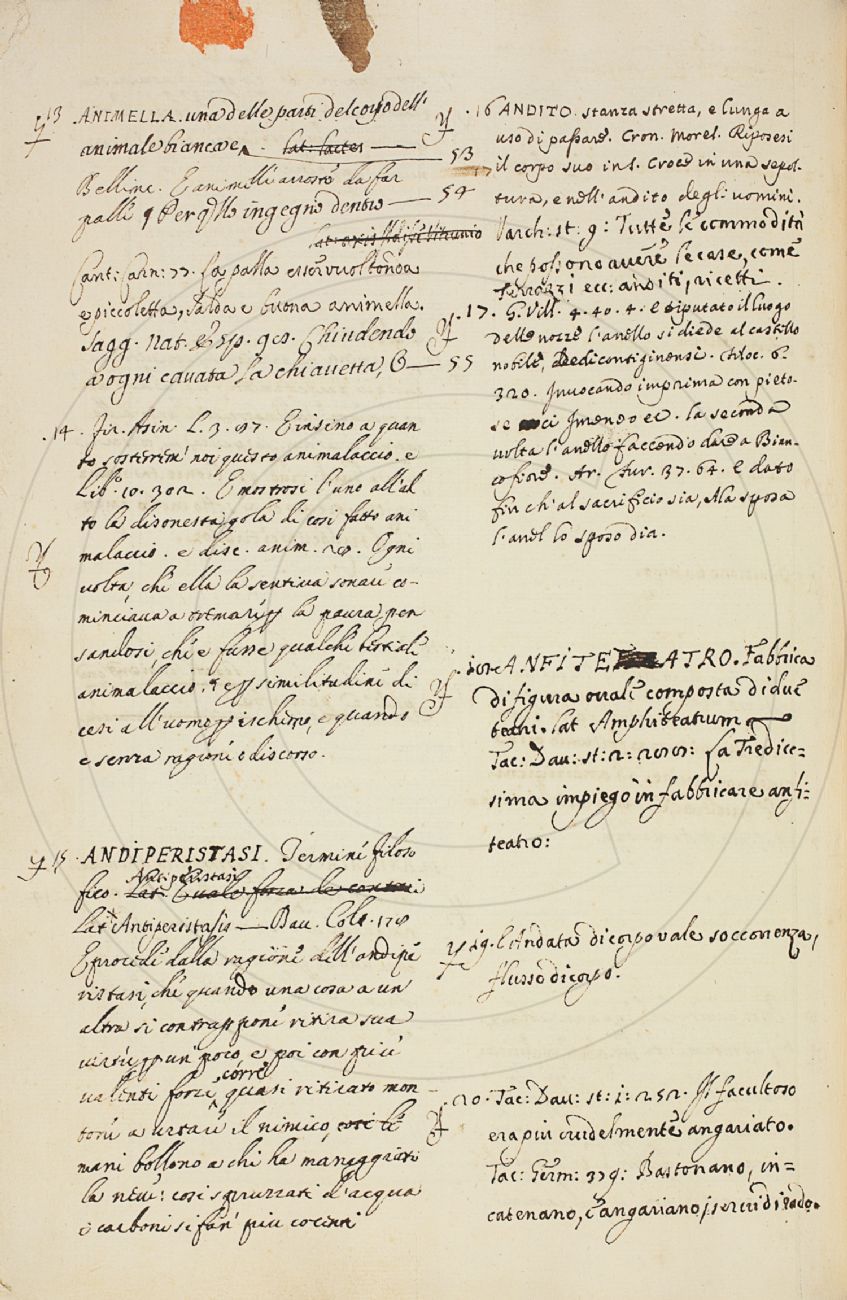 13 ANIMELLA. una delle parti del corpo dell'
animale bianca e Lat. lactes
53
Bellinc. E animelle arrosto da far
palli Per quello ingegno dentro — 54
Cant: Carn: 77. La palla esser vuol tonda
e piccoletta, salda e buona animella.
Sagg. nat. esp. Chiudendo
a ogni cavata la chiavetta, — 55
.14 . Fir. Asin. L. 3. E insino a quan
to sosterem noi questo animalaccio. e
Lib. 10. 302. E mostrosi l'uno all'al
to la disonesta gola di così fatto ani
malaccio. e disc. anim. Ogni
volta, che ella la sentiva sonare co-
minciava a tremar la paura, pen
sandosi, che e fusse qualche bestiale
animalaccio. similitudine di
cesi all'uomo ischerno, e quando
e senza ragione o discorso.
15 . ANDIPERISTASI. Termine filoso
fico. Antiperistasi
Lat. Antiperistasis — Dav. Colt. 178
E procede dalla ragione dell'andipe
ristasi, che quando una cosa a un
altra si contrappone ritira sua
virtù un poco, e poi con più
valente forze, corre quasi ritirato mon
tone a urtare il nimico, così le
mani bollono a chi ha maneggiato
la neve: così spruzzati d'acqua
i carboni si fan più cocenti
. 16 ANDITO. stanza stretta, e lunga a
uso di passare. Cron. Morel. Riposesi
il corpo suo in S. Croce in una sepol-
tura, e nell'andito degli uomini.
Varch: st: 9: Tutte le commodità
che possono avere le case, come
terrazzi ecc: anditi, ricetti.
. 17. G. Vill. 4. 40. 4. E diputato il luogo
delle nozze l'anello si diede al castello
nobile, Filoc. 6.
320. Invocando imprima con pieto-
se voci Imeneo ec. la seconda
volta l'anello faccendo dare a Bian-
cofiore. Ar. Fur. 37. 64. E dato
fin ch'al sacrificio sia, Ma sposa
l'anel lo sposo dia.
ANFITEATRO. Fabbrica
di figura ovale composta di due
teatri. Lat Amphiteatrum
Tac: Dav: st: 2: La Tredice=
sima impiegò in fabbricare anfi=
teatro:
.19. Andata di corpo vale soccorrenza,
flusso di corpo.
.20. Tac: Dav: st: 1: 252. Il facultoso
era più crudelmente angariato.
Tac: Germ: 379: Bastonano, in=
catenano, e angariano, i servi di rado.